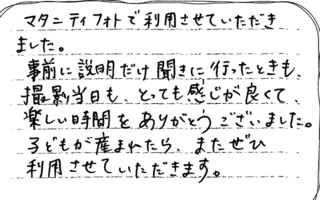 マタニティフォトで利用させていただき
ました。
事前に説明だけ聞きに行ったときも、
撮影当日も、とっても感じが良くて、
楽しい時間をありがとうございました。
子どもが産まれたら、またぜひ
利用させていただきます。